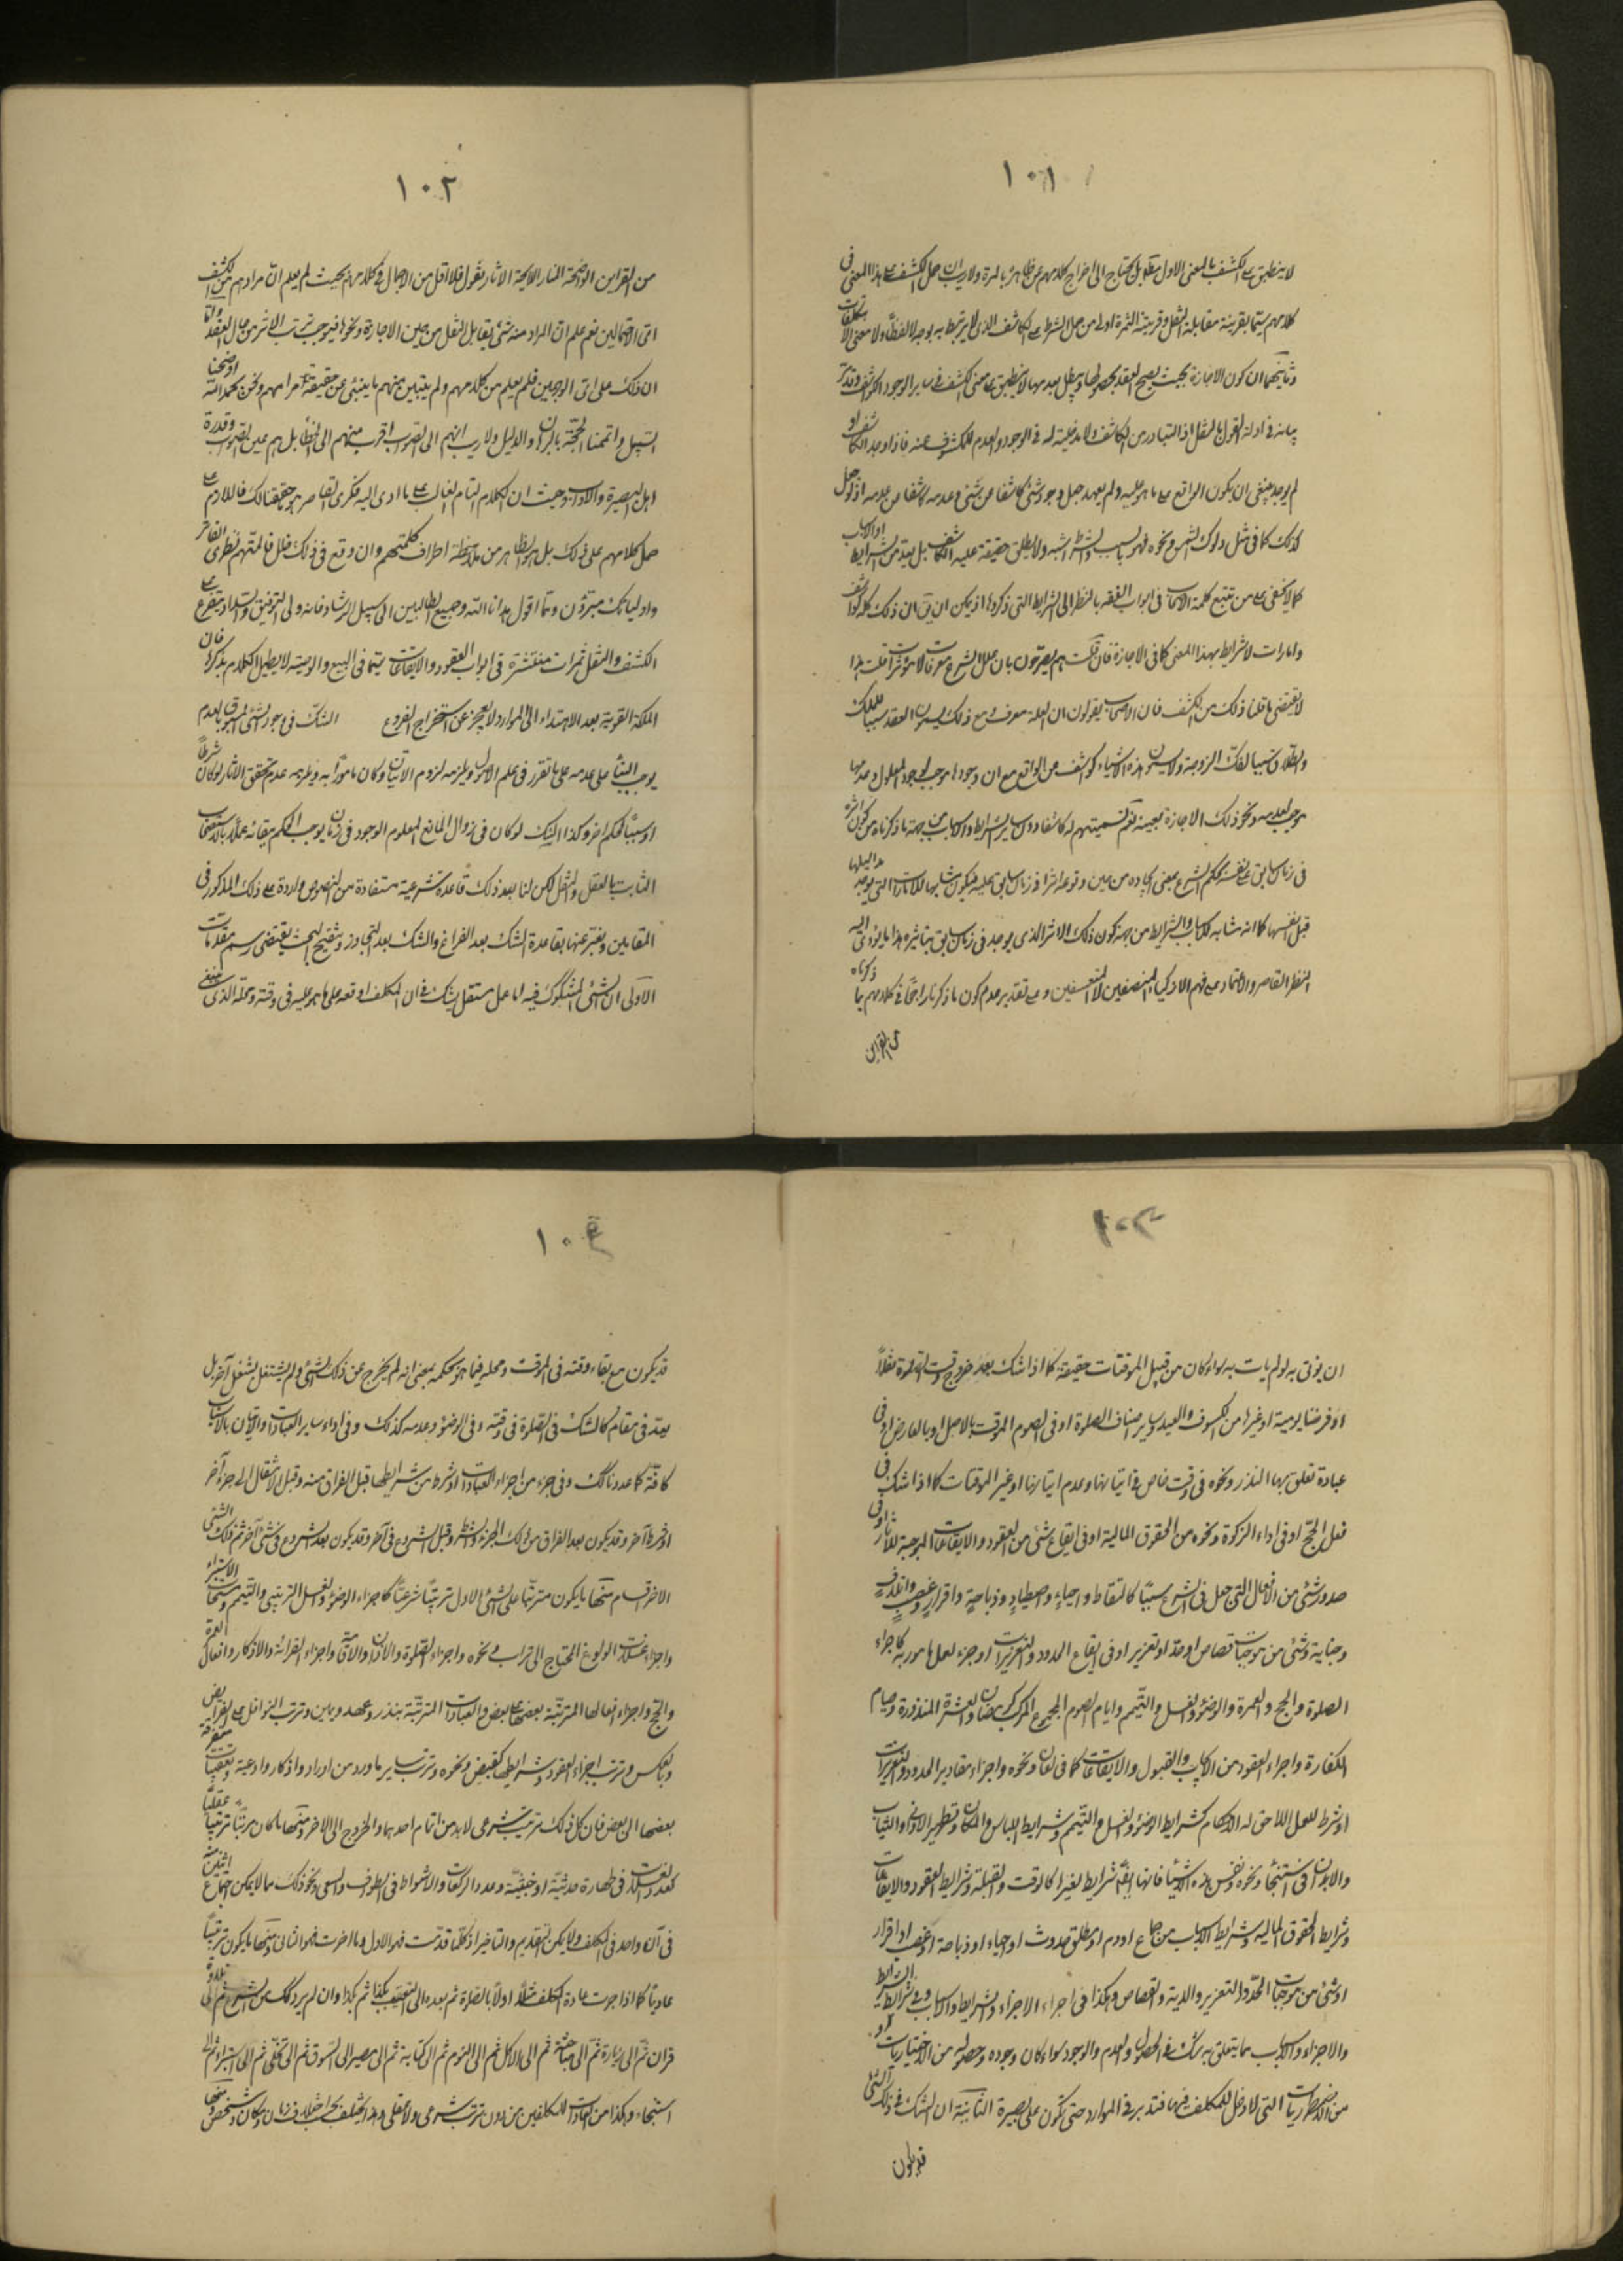 ١٠١
لا ينطبق على الكشف بالمعنى الاول بل يحتاج الى اخراج كلامهم عن ظاهره بالمرة ولا ريب ان حمل الكشف على هذا المعنى في
كلامهم سيما بقرينة مقابلة النقل وقرينة الثمرة اولى من حمل الشرط على الكاشف الذي لا يرتبط به بوجه لا لفظا ولا معنى الا بتكلفات
وثانيهما ان كون الاجازة بحيث يصح العقد بحصولها ويبطل بعدمها لا ينطبق على معنى الكشف في ساير الوجود الكواشف وقد مر
بيانه في ادلة القول بالنقل اذ المتبادر من الكاشف ما لا مدخلية له في الوجود والعدم للمكشوف عنه فاذا وجد الكاشف او
لم يوجد ينبغي ان يكون الواقع على ما هو عليه ولم يعهد جعل وجود شئ كاشفا عن شئ وعدمه كاشفا عن عدمه اذ لو جعل
كذلك كما في مثل دلوك الشمس ونحوه فهو بالسبب والشرط اشبه ولا يطلق حقيقة عليه الكاشف بل يعد من الشرايط او الاسباب
كما لا يخفى على من تتبع كلمة الاصحاب في ابواب الفقه بالنظر الى الشرايط التي ذكروها اذ يمكن ان يق ان ذلك كله كواشف
وامارات لا شرايط بهذا المعنى كما في الاجازة فان قلت هم يصرحون بان علل الشرع معرفات لا مؤثرات قلت هذا
لا يقتضي ما قلنا ذلك من الكشف فان الاصحاب يقولون ان العلة معرف ومع ذلك يسمون العقد سببا للملك
والطلاق سببا لفك الزوجة ولا يسمون هذه الاشياء كواشف عن الواقع مع ان وجودها موجب لوجود المعلول وعدمها
موجب لعدمه ونحو ذلك الاجازة بعينه نعم تسميتهم له كاشفا دون ساير الشرايط والاسباب من جهة ما ذكرناه من كون اثره
في زمان سابق على نفسه بحكم الشرع بمعنى ايجاده من حين وقوعه اثرا في زمان سابق عليه فيكون مشابها للامارات التي يوجد مداليلها
قبل نفسها كما انه مشابه للاسباب والشرايط من جهة كون ذلك الاثر الذي يوجد في زمان سابق بتاثيره هذا ما يؤدي اليه
النظر القاصر والاعتماد على فهم الاذكياء المنصفين لا المتعسفين وعلى تقدير عدم كون ما ذكرنا راجحا في كلامهم بما ذكرناه
من القراين
١٠٢
من القراين الواضحة المنار اللايحة الاثار نقول فلا اقل من الاجمال في كلامهم بحيث لم يعلم ان مرادهم من الكشف
اي الاحتمالين نعم علم ان المراد منه شئ يقابل النقل من حين الاجازة ونحوها فيوجب ترتب الاثر من حال العقد واما
ان ذلك على اي الوجهين فلم يعلم من كلامهم ولم يتبين منهم ما ينبئ عن حقيقة مرامهم ونحن بحمد الله اوضحنا
السبيل واتممنا الحجة بالبرهان والدليل ولا ريب انهم الى الصواب اقرب منهم الى الخطأ بل هم عين الصواب وقدوة
اهل البصيرة والالباب وحيث ان الكلام التام الغالب على ما ادى اليه فكري القاصر هو ما حققنا لك فاللازم على
حمل كلامهم على ذلك بل هو الظاهر من ملاحظة اطراف كلمتهم وان وقع في ذلك خلل فالمتهم نظري القاصر
واوليائك مبرؤن ومما اقول هدانا الله وجميع الطالبين الى سبيل الرشاد فانه ولي التوفيق والسداد ويتفرع على
الكشف والنقل ثمرات منتشرة في ابواب العقود والايقاعات سيما في البيع والوصية لا يطيل الكلام بذكرها فان
الملكة القوية بعد الاهتداء الى الموارد لا يعجز عن استخراج الفروع الشك في وجود الشئ المسبوق بالعدم
يوجب البناء على عدمه على ما تقرر في علم الاصول ويلزمه لزوم الاتيان لو كان مامورا به ويلزمه عدم تحقق الاثار لو كان شرطا
او سببا لحكم اخر وكذا الشك لو كان في زوال المانع المعلوم الوجود في زمان يوجب الحكم ببقائه عملا بالاستصحاب
الثابت بالعقل والنقل لكن لنا بعد ذلك قاعدة شرعية مستفادة من النصوص واردة على ذلك المذكور في
المقامين ونعبر عنها بقاعدة الشك بعد الفراغ والشك بعد التجاوز وتنقيح البحث يقتضي رسم مقدمات
الاولى ان الشئ المشكوك فيه اما عمل مستقل يشك في ان المكلف اوقعه على ما هو عليه في وقته ومحله الذي ينبغي
١٠٣
ان يؤتى به او لم يات به سواء كان من قبيل الموقتات حقيقة كما اذا شك بعد خروج وقت الصلوة نفلا
او فرضا يومية او غيرها من الكسوف والعيد وساير اصناف الصلوة او في الصوم الموقت بالاصل او بالعارض او في
عبادة تعلق بها النذر ونحوه في وقت خاص في اتيانها وعدم اتيانها او غير الموقتات كما اذا شك في
فعل الحج او في اداء الزكوة ونحوه من الحقوق المالية او في ايقاع شئ من العقود والايقاعات الموجبة للاثار او في
صدور شئ من الافعال التي جعل في الشرع سببا كالتقاط واحياء واصطياد وذباحة واقرار وغصب واتلاف
وجناية وشئ من موجبات قصاص او حد او تعزير او في ايقاع الحدود والتعزيرات او جزء لعمل مامور به كاجزاء
الصلوة والحج والعمرة والوضوء والغسل والتيمم وايام الصوم المجموع المركب كرمضان والعشرة المنذورة وصيام
الكفارة واجزاء العقود من الايجاب والقبول والايقاعات كما في لعان ونحوه واجزاء مقادير الحدود والتعزيرات
او شرط للعمل اللاحق له الاحكام كشرايط الوضوء والغسل والتيمم وشرايط اللباس والمكان وتطهير الاواني والثياب
والابدان في استنجاء ونحوه ونفس هذه الاشياء فانها ايضا شرايط لغيرها كالوقت والقبلة وشرايط العقود والايقاعات
وشرايط الحقوق المالية وشرايط الاسباب من جماع او دم او مطلق حدوث او احياء او ذباحة او غصب او اقرار
او شئ من موجبات الحد والتعزير والدية والقصاص وهكذا في اجزاء الاجزاء والشرايط والاسباب وفي شرايط الشرايط
والاجزاء والاسباب مما يتعلق به شك في الحصول والعدم والوجود سواء كان وجوده وحصوله من الاختياريات او
من الاضطراريات التي لا دخل للمكلف فيها فتدبر في الموارد حتى تكون على بصيرة الثانية ان الشك في ذلك الشئ
قد يكون
١٠٤
قد يكون مع بقاء وقته في الموقت ومحله فيما هو بحكمه بمعنى انه لم يخرج عن ذلك الشئ ولم يشتغل بشغل آخر بل
يعد في مقام كالشك في الصلوة في وقته وفي الوضوء وعدمه كذلك وفي اداء ساير العبادات والاتيان بالاسباب
كافة كما عددنا لك وفي جزء من اجزاء العبادات او شرط من شرايطها قبل الفراق منه وقبل الانتقال الى جزء آخر
او شرط آخر وقد يكون بعد الفراق من ذلك الجزء والشرط وقبل الشروع في آخر وقد يكون بعد الشروع في شئ آخر ثم ذلك الشئ
الاخر اقسام منها ما يكون مترتبا على الشئ الاول ترتبا شرعيا كاجزاء الوضوء والغسل الترتيبي والتيمم ومستحبات الاستبراء
واجزاء غسلات الولوغ المحتاج الى تراب ونحوه واجزاء الصلوة والاذان والاقامة واجزاء القرائة والاذكار وافعال العمرة
والحج واجزاء افعالها المترتبة بعضها على بعض والعبادات المترتبة بنذر وعهد ويمين وترتب النوافل على الفرايض
وبالعكس وترتب اجزاء العقود وشرايطها كقبض ونحوه وترتب ساير ما ورد من اوراد واذكار وادعية وتعقيبات متفرقة
بعضها الى بعض فان كل ذلك ترتيب شرعي لا بد من اتمام احدهما والخروج الى الاخر ومنها ما كان مرتبا ترتبا عقليا
كعدد الغسلات في طهارة حدثية او خبثية وعدد الركعات والاشواط في الطواف والسعي ونحو ذلك مما لا يمكن اجتماع اثنين منه
في آن واحد في المكلف ولا يمكن التقديم والتاخير اذ كلما قدمت فهو الاول وما اخرت فهو الثاني ومنها ما يكون ترتبا
عاديا كما اذا جرت عادة المكلف مثلا اولا بالصلوة ثم بعده الى التعقيب بكذا ثم بكذا وان لم يرد ذلك من الشرع ثم الى تلاوة
قران ثم الى زيارة ثم الى مباحثة ثم الى الاكل ثم الى النوم ثم الى كتابة ثم الى مصير الى السوق ثم الى تخلي ثم الى استبراء ثم الى
استنجاء وهكذا من العادات للمكلفين من دون ترتب شرعي ولا عقلي وهذا يختلف بحسب اختلاف زمان ومكان وشخص ومنها